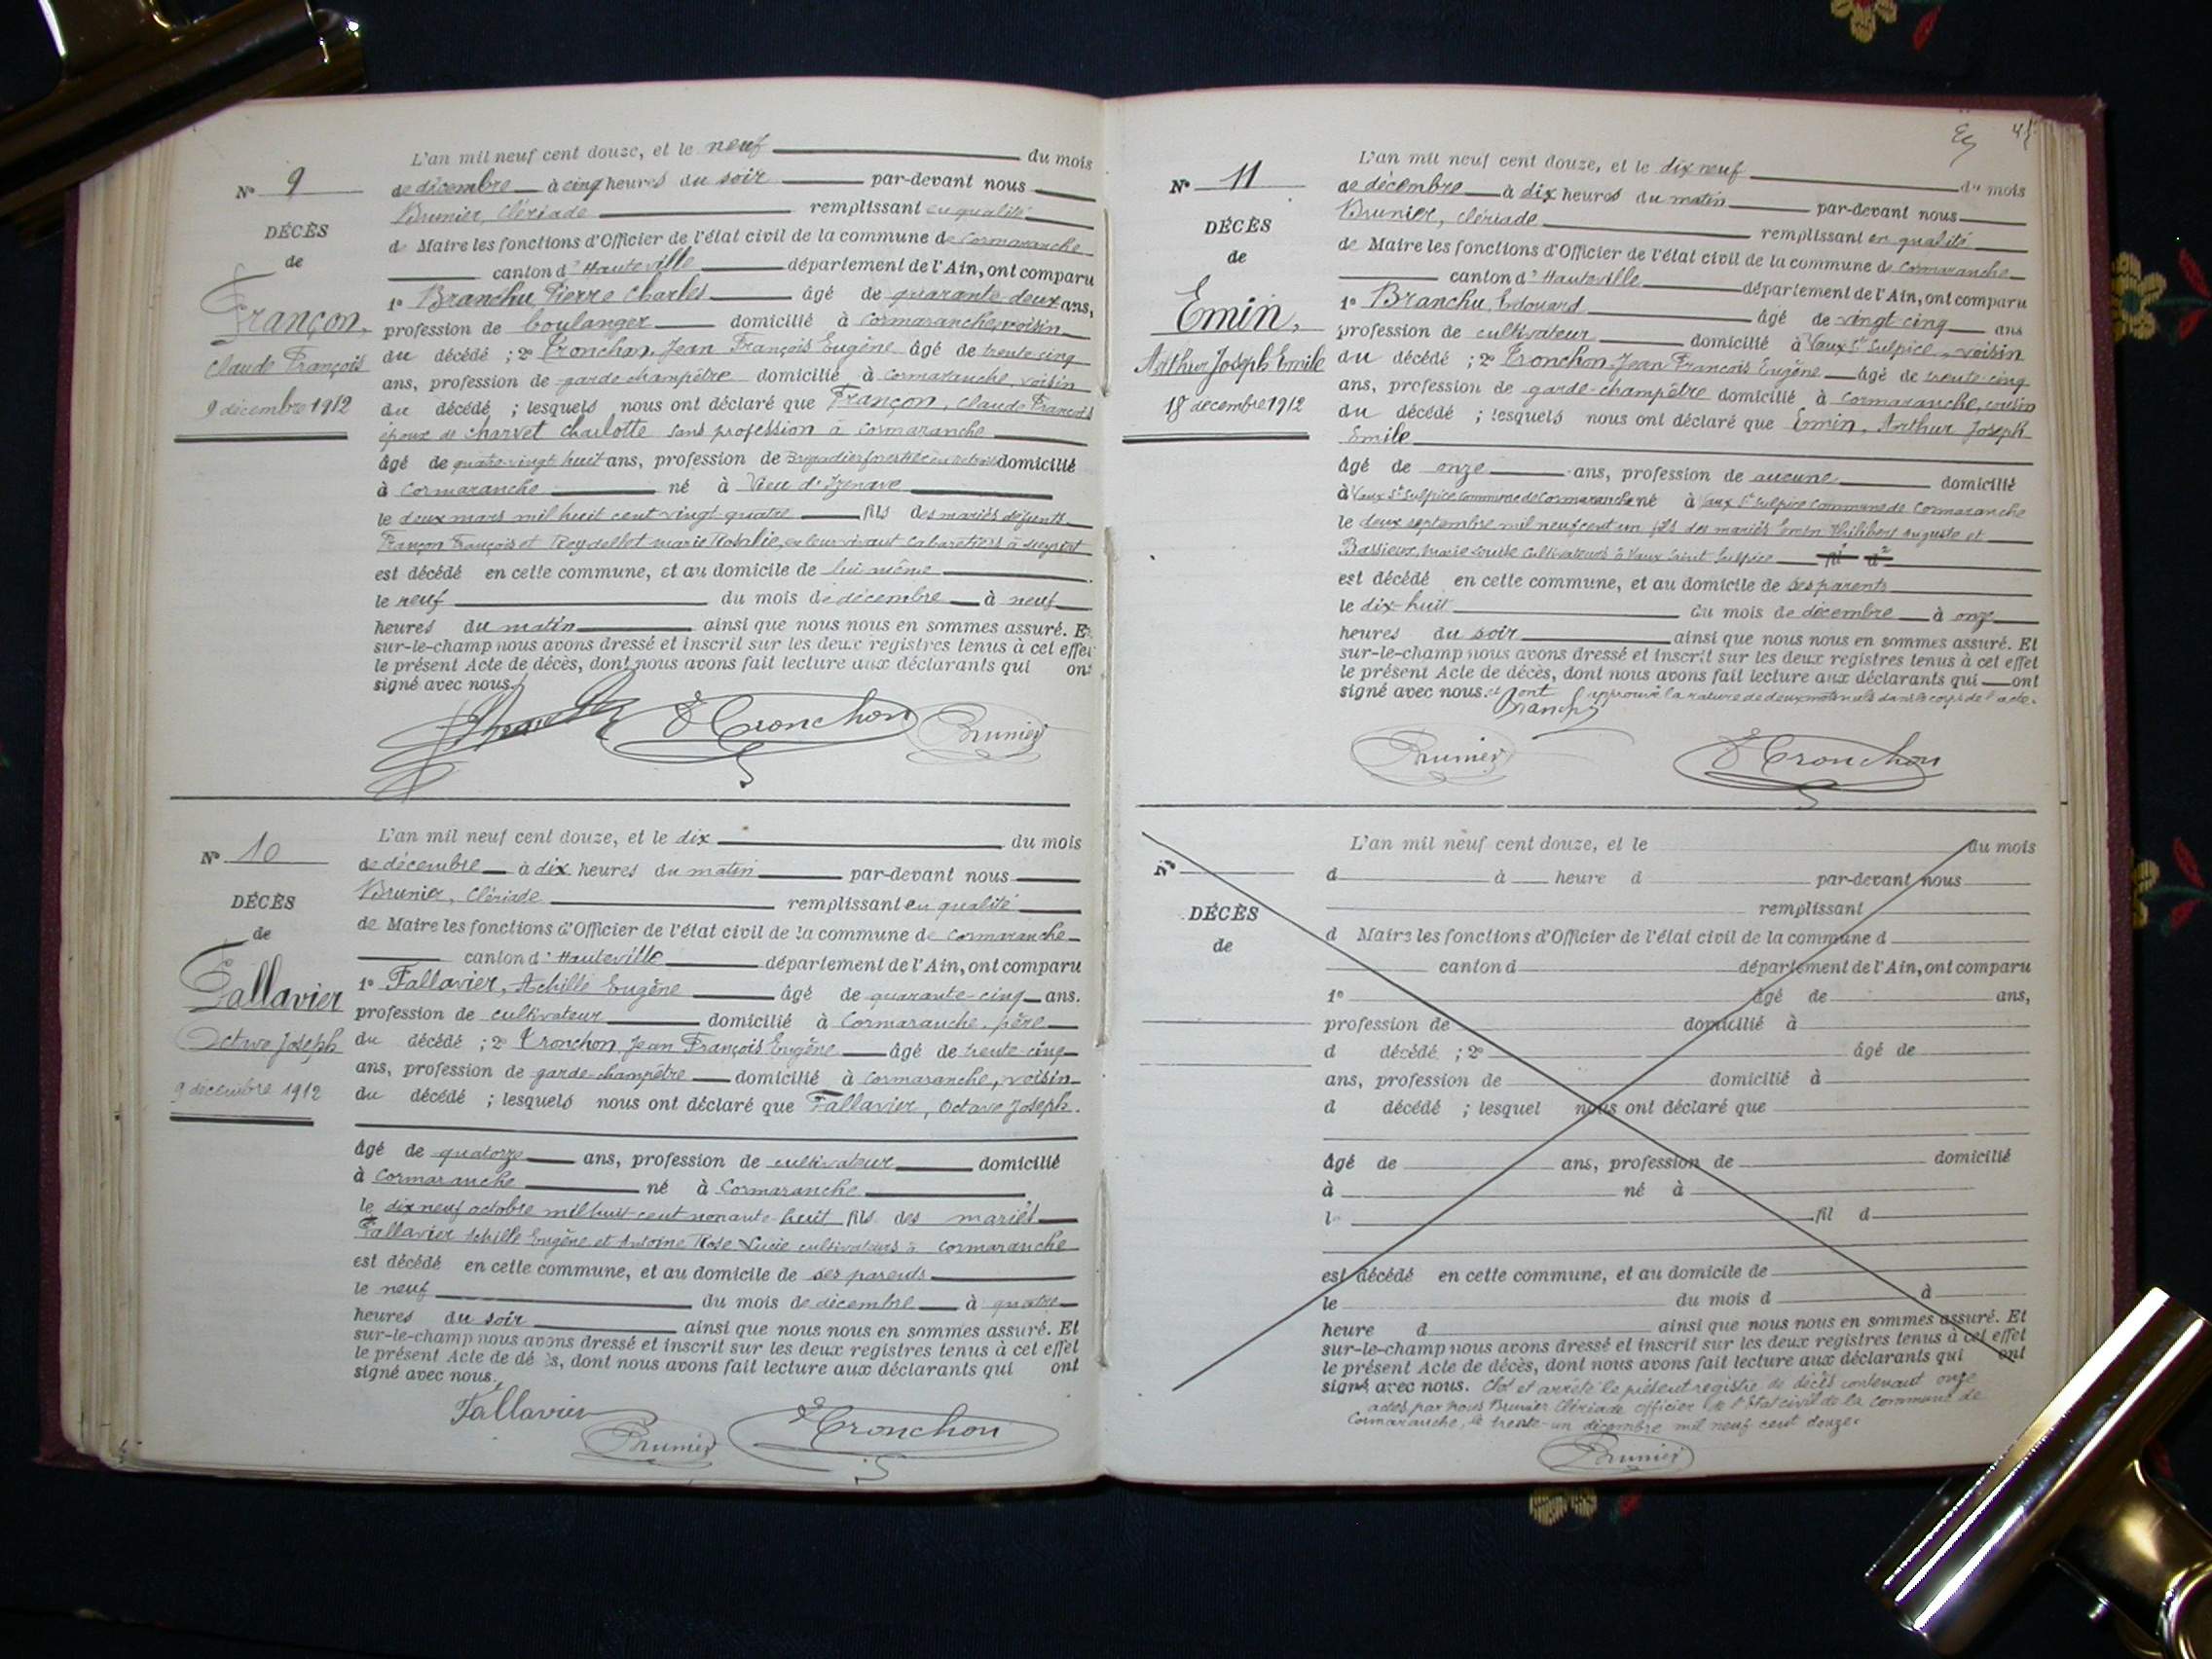 L'an mil neuf cent douze, et le neuf du mois
N° 9
de décembre à cinq heures du soir par-devant nous
Brunier, Clériade remplissant en qualité
DÉCÈS
de Maire les fonctions d'Officier de l'état civil de la commune de Cormaranche
de
canton d'Hauteville département de l'Ain, ont comparu
Françon,
1° Branchu, Pierre Charles âgé de quarante-deux ans,
profession de boulanger domicilié à Cormaranche, voisin
Claude François
du décédé ; 2° Tronchon, Jean François Eugène âgé de trente cinq
ans, profession de garde champêtre domicilié à Cormaranche, voisin
9 décembre 1912
du décédé ; lesquels nous ont déclaré que Françon, Claude François
époux de Charvet Charlotte sans profession à Cormaranche
âgé de quatre-vingt huit ans, profession de Brigadier forestier en retraite domicilié
à Cormaranche né à Vieu d'Izenave
le deux mars mil huit cent vingt quatre fils des mariés défunts
Françon François et Reydellet Marie Rosalie, en leur vivant cabaretiers à
est décédé en cette commune, et au domicile de lui même
le neuf du mois de décembre à neuf
heures du matin ainsi que nous nous en sommes assuré. Et
sur-le-champ nous avons dressé et inscrit sur les deux registres tenus à cet effet
le présent Acte de décès, dont nous avons fait lecture aux déclarants qui ont
signé avec nous.
E Tronchon Brunier
L'an mil neuf cent douze, et le dix du mois
N° 10
de décembre à dix heures du matin par-devant nous
Brunier, Clériade remplissant en qualité
DÉCÈS
de Maire les fonctions d'Officier de l'état civil de la commune de Cormaranche
de
canton d'Hauteville département de l'Ain, ont comparu
Fallavier
1° Fallavier, Achille Eugène âgé de quarante-cinq ans.
profession de cultivateur domicilié à Cormaranche, père
Octave Joseph
du décédé ; 2° Tronchon, Jean François Eugène âgé de trente cinq
ans, profession de garde-champêtre domicilié à Cormaranche, voisin
9 décembre 1912
du décédé ; lesquels nous ont déclaré que Fallavier, Octave Joseph.
âgé de quatorze ans, profession de cultivateur domicilié
à Cormaranche né à Cormaranche
le dix neuf octobre mil huit cent nonante-huit fils des mariés
Fallavier Achille Eugène et Antoine Rose Lucie cultivateurs à Cormaranche
est décédé en cette commune, et au domicile de ses parents
le neuf du mois de décembre à quatre
heures du soir ainsi que nous nous en sommes assuré. Et
sur-le-champ nous avons dressé et inscrit sur les deux registres tenus à cet effet
le présent Acte de dé ès, dont nous avons fait lecture aux déclarants qui ont
signé avec nous.
Fallavier
Brunier E Tronchon
L'an mil neuf cent douze, et le dix neuf du mois
N° 11
de décembre à dix heures du matin par-devant nous
Brunier, Clériade remplissant en qualité
DÉCÈS
de Maire les fonctions d'Officier de l'état civil de la commune de Cormaranche
de
canton d'Hauteville département de l'Ain, ont comparu
Emin,
1° Branchu, Edouard âgé de vingt-cinq ans
profession de cultivateur domicilié à Vaux St Sulpice, voisin
Arthur Joseph Emile
du décédé ; 2° Tronchon Jean François Eugène âgé de trente-cinq
ans, profession de garde-champêtre domicilié à Cormaranche, voisin
18 décembre 1912
du décédé ; lesquels nous ont déclaré que Emin, Arthur Joseph
Emile
âgé de onze ans, profession de aucune domicilié
à Vaux St Sulpice Commune de Cormaranche né à Vaux St Sulpice Commune de Cormaranche
le deux septembre mil neuf cent un fils des mariés Emin Philibert Auguste et
Bassieux, Marie Louise Cultivateurs à Vaux Saint Sulpice fil d
est décédé en cette commune, et au domicile de ses parents
le dix-huit du mois de décembre à onze
heures du soir ainsi que nous nous en sommes assuré. Et
sur-le-champ nous avons dressé et inscrit sur les deux registres tenus à cet effet
le présent Acte de décès, dont nous avons fait lecture aux déclarants qui ont
signé avec nous. et ont approuvé la rature de deux mots nuls dans le corps de l'acte.
Branchu
Brunier E Tronchon
L'an mil neuf cent douze, et le du mois
N°
d à heure d par-devant nous
remplissant
DÉCÈS
d Maire les fonctions d'Officier de l'état civil de la commune d
de
canton d département de l'Ain, ont comparu
1° âgé de ans,
profession de domicilié à
d décédé ; 2° âgé de
ans, profession de domicilié à
d décédé ; lesquel nous ont déclaré que
âgé de ans, profession de domicilié
à né à
l fil d
est décédé en cette commune, et au domicile de
le du mois d à
heure d ainsi que nous nous en sommes assuré. Et
sur-le-champ nous avons dressé et inscrit sur les deux registres tenus à cet effet
le présent Acte de décès, dont nous avons fait lecture aux déclarants qui ont
signé avec nous. Clot et arrêté le présent registre de décès contenant onze
actes par nous Brunier Clériade officier de l'État civil de la Commune de
Cormaranche, le trente-un décembre mil neuf cent douze.
Brunier